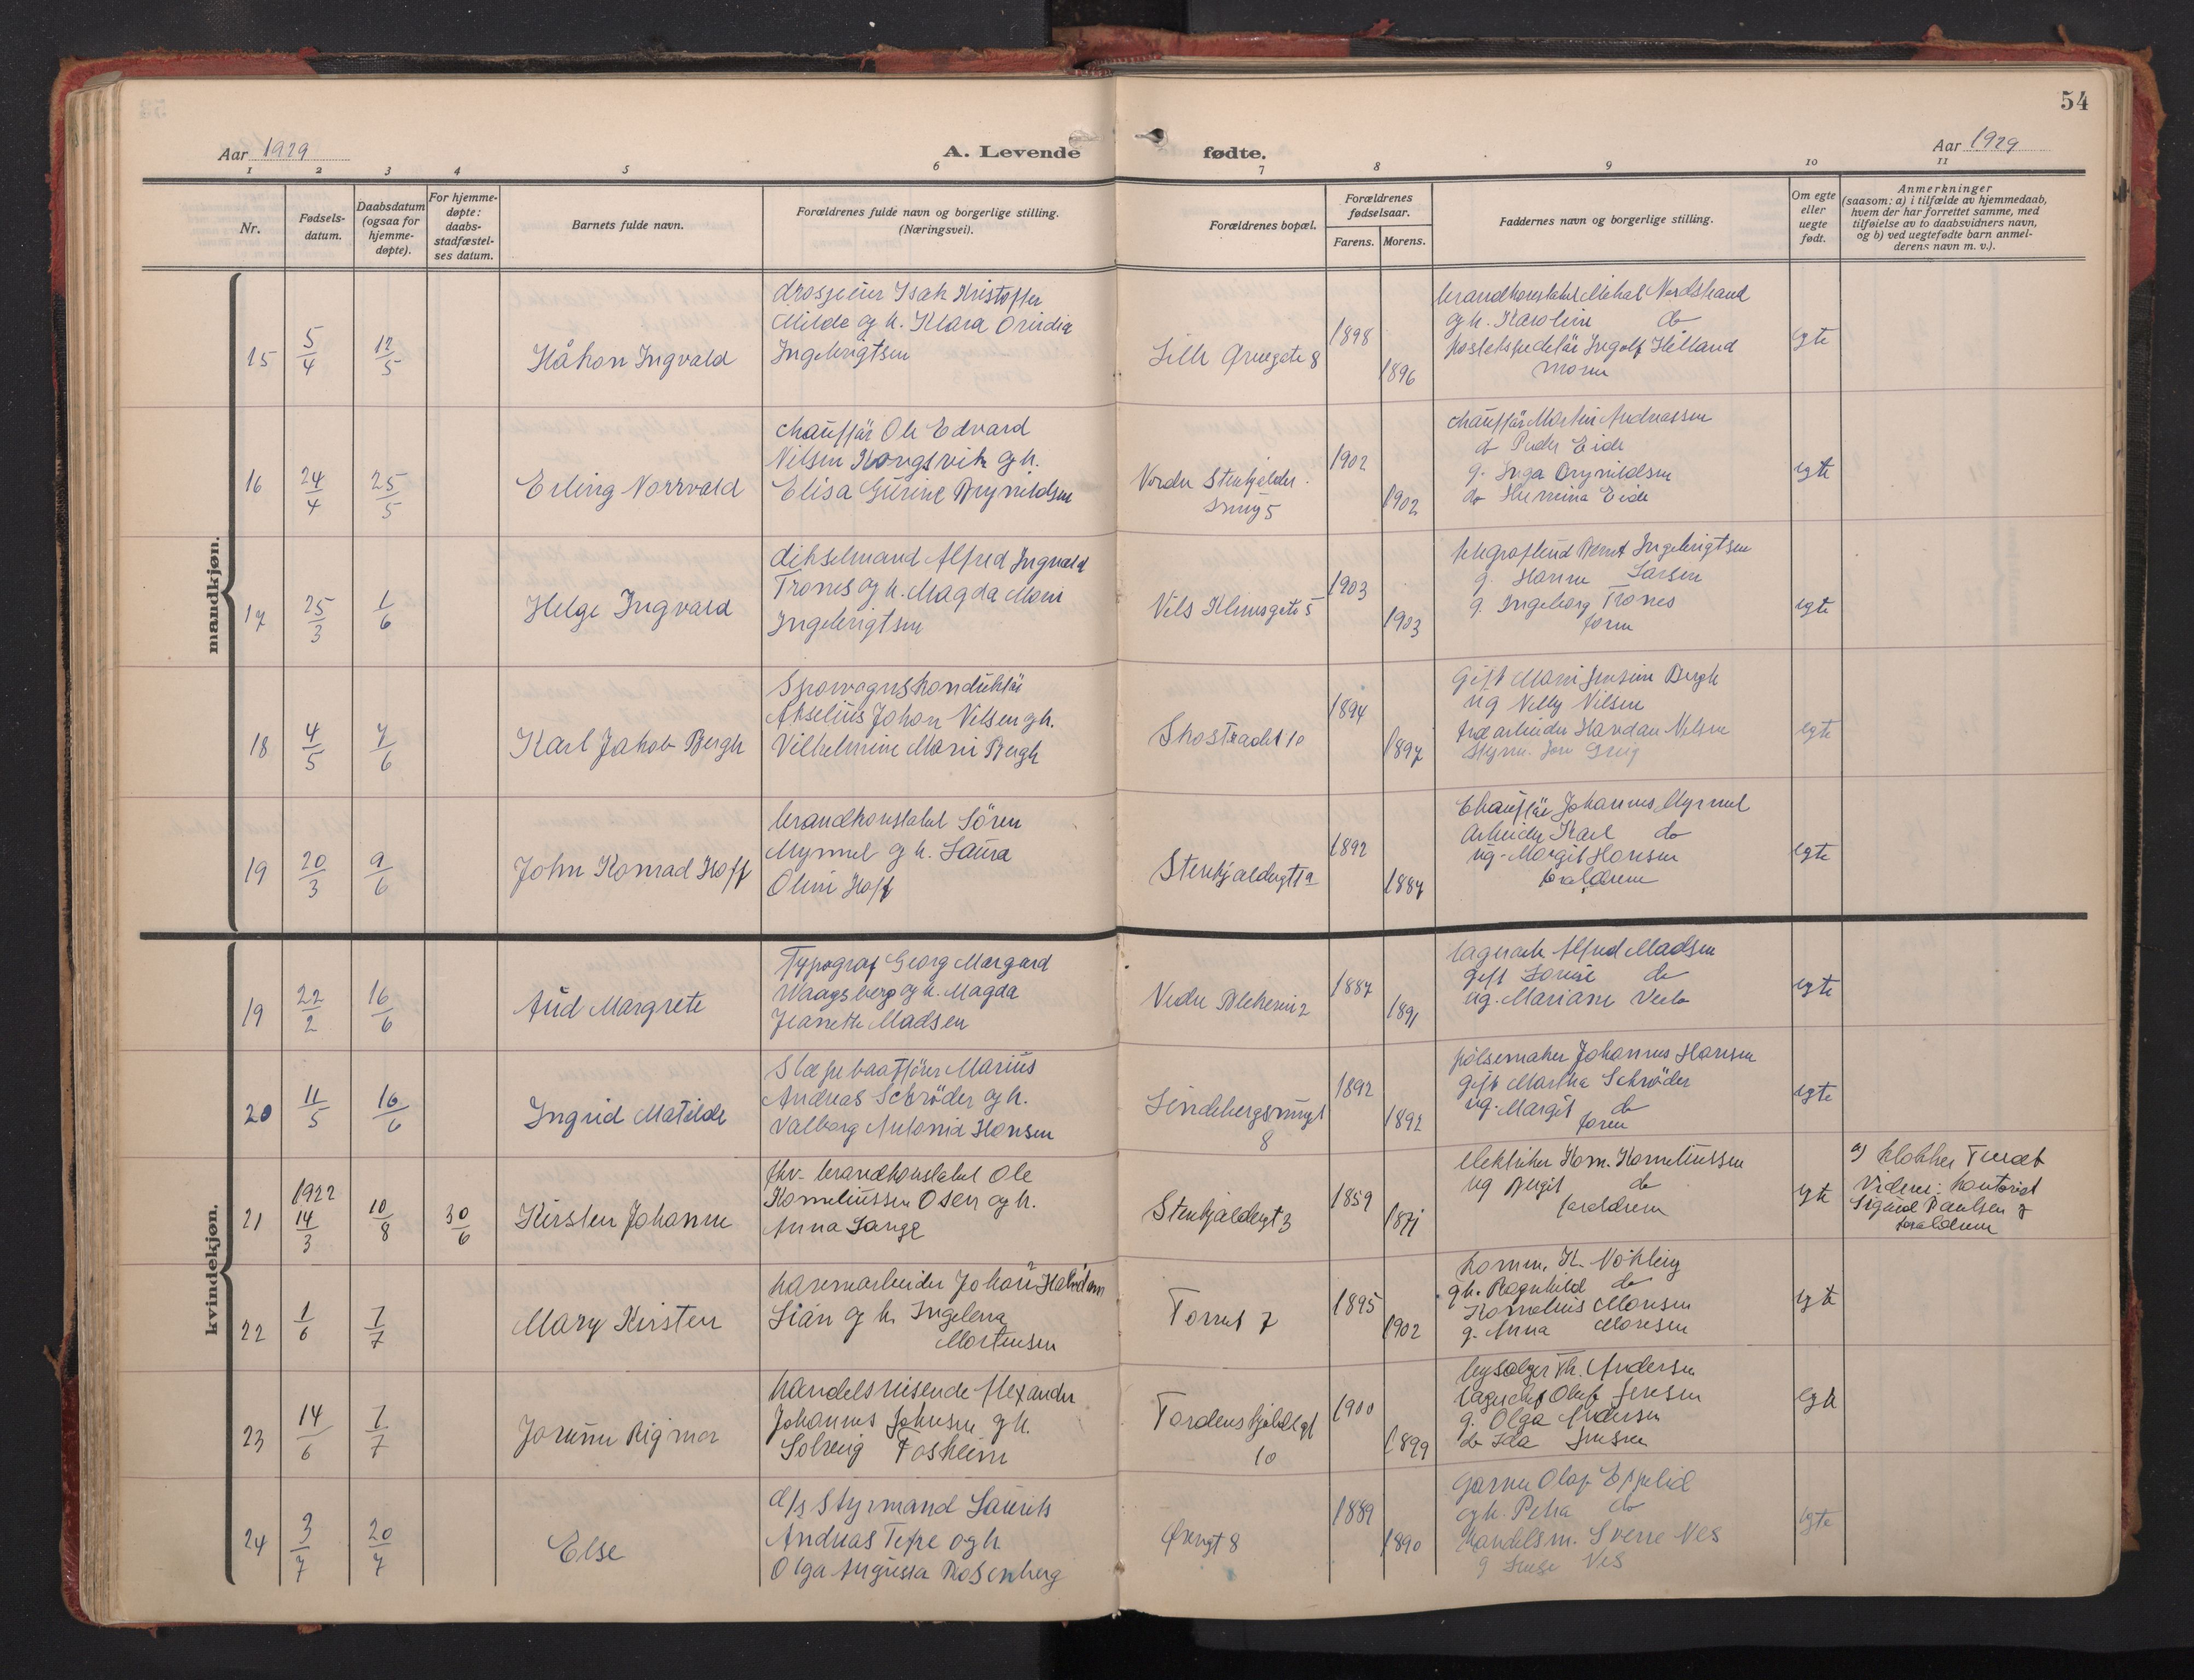 54
Aar 1929
A. Levende fødte.
Aar 1929
1 2 3 4 5 6 7 8 9 10 11
Nr.
Fødsels-
datum.
Daabsdatum
(ogsaa for
hjemme-
døpte).
For hjemme-
døpte:
daabs-
stadfæstel-
ses datum.
Barnets fulde navn.
Forældrenes fulde navn og borgerlige stilling.
(Næringsvei).
Forældrenes bopæl.
Forældrenes
fødselsaar.
Farens. Morens.
Faddernes navn og borgerlige stilling.
Om egte
eller
uegte
født.
Anmerkninger
(saasom: a) i tilfælde av hjemmedaab,
hvem der har forrettet samme, med
tilføielse av to daabsvidners navn,
og b) ved uegtefødte barn anmel-
derens navn m. v.).
mandkjøn.
15 5/4 12/5 Håkon Ingvald
drosjeeier Isak Kristoffer
Milde og h. Klara
Ingebrigtsen
8
1898
1896
brandkonstabel Mikal Nordstrand
og h. Karoline do
Ingolf Helland
moren
egte
16 24/4 25/5 Erling Norvald
chauffør Ole Edvard
Nilsen Kongsvik og h.
Elisa Gurine Brynildsen
Nordre Stenkjelder-
smug 5
1902
1902
chauffør Martin Andreassen
do Peder Eide
g. Inga Brynildsen
do Eide
egte
17 25/3 1/6 Helge Ingvald
dikselmand Alfred Ingvald
Trones og h. Magda Marie
Ingebrigtsen
Nils Klimsgate 5
1903
1903
Bernt Ingebrigtsen
g. Hanne Larsen
g. Ingeborg Trones
faren
egte
18 4/5 7/6 Karl Jakob Bergh
Sporvognskonduktør
Akselius Johan Nilsen og h.
Vilhelmine Marie Bergh
Skostrædet 10
1894
1897
Gift Marie Bergh
ug Nelly Nilsen
Nilsen
egte
19 20/3 9/6 John Konrad Hoff
brandkonstabel Sören
Myrmel og h. Laura
Oline Hoff
1892
1887
Chauffør Johannes Myrmel
Arbeider Karl do
ug. Margit Hansen
forældrene
egte
kvindekjøn.
19 22/2 16/6 Aud Margrete
Typograf Georg Margard
Waagsberg og h. Magda
Jeanette Madsen
Nedre Blekevei 2
1887
1891
Alfred Madsen
gift Louise do
ug. Mariane
egte
20 11/5 16/6 Ingrid Matilde
Slæpebaatfører Marius
Andreas Schrøder og h.
Valborg Antonie Hansen
Lindebergsmuget
8
1892
1892
pølsemaker Johannes Hansen
gift Martha Schrøder
ug. Margit do
faren
egte
21 1922 14/3 10/8 30/6 Kirsten Johanne
fhv. brandkonstabel Ole
Korneliussen Osen og h.
Anna Lange
Stenkjeldergt 3
1859
1871
elektriker Korn. Korneliussen
ug Bergit do
forældrene
egte
a) klokker
Vidner: kontorist
Sigurd Paulsen &
forældrene
22 1/6 7/7 Mary Kirsten
havnearbeider Johan Halvdan
og h. Ingelena
Mortensen
Torvet 7
1895
1902
K. Nökling
g h. Ragnhild do
Kornelius Monsen
g. Anna Monsen
egte
23 14/6 7/7 Jorunn Rigmor
Handelsreisende Alexander
Johannes Johnsen og h.
Solveig Fosheim
Tordenskjoldsgt
10
1900
1899
Th. Andersen
Oluf Jensen
g. Olga Andersen
do Ida Jensen
egte
24 3/7 20/7 Else
d/s Styrmand Laurits
Andreas Tepre og h.
Olga Augusta Rosenberg
Øvregt 8
1889
1890
Garver Olaf Eppelid
og h. Petra do
handelsm. Sverre Nes
g Nes
egte